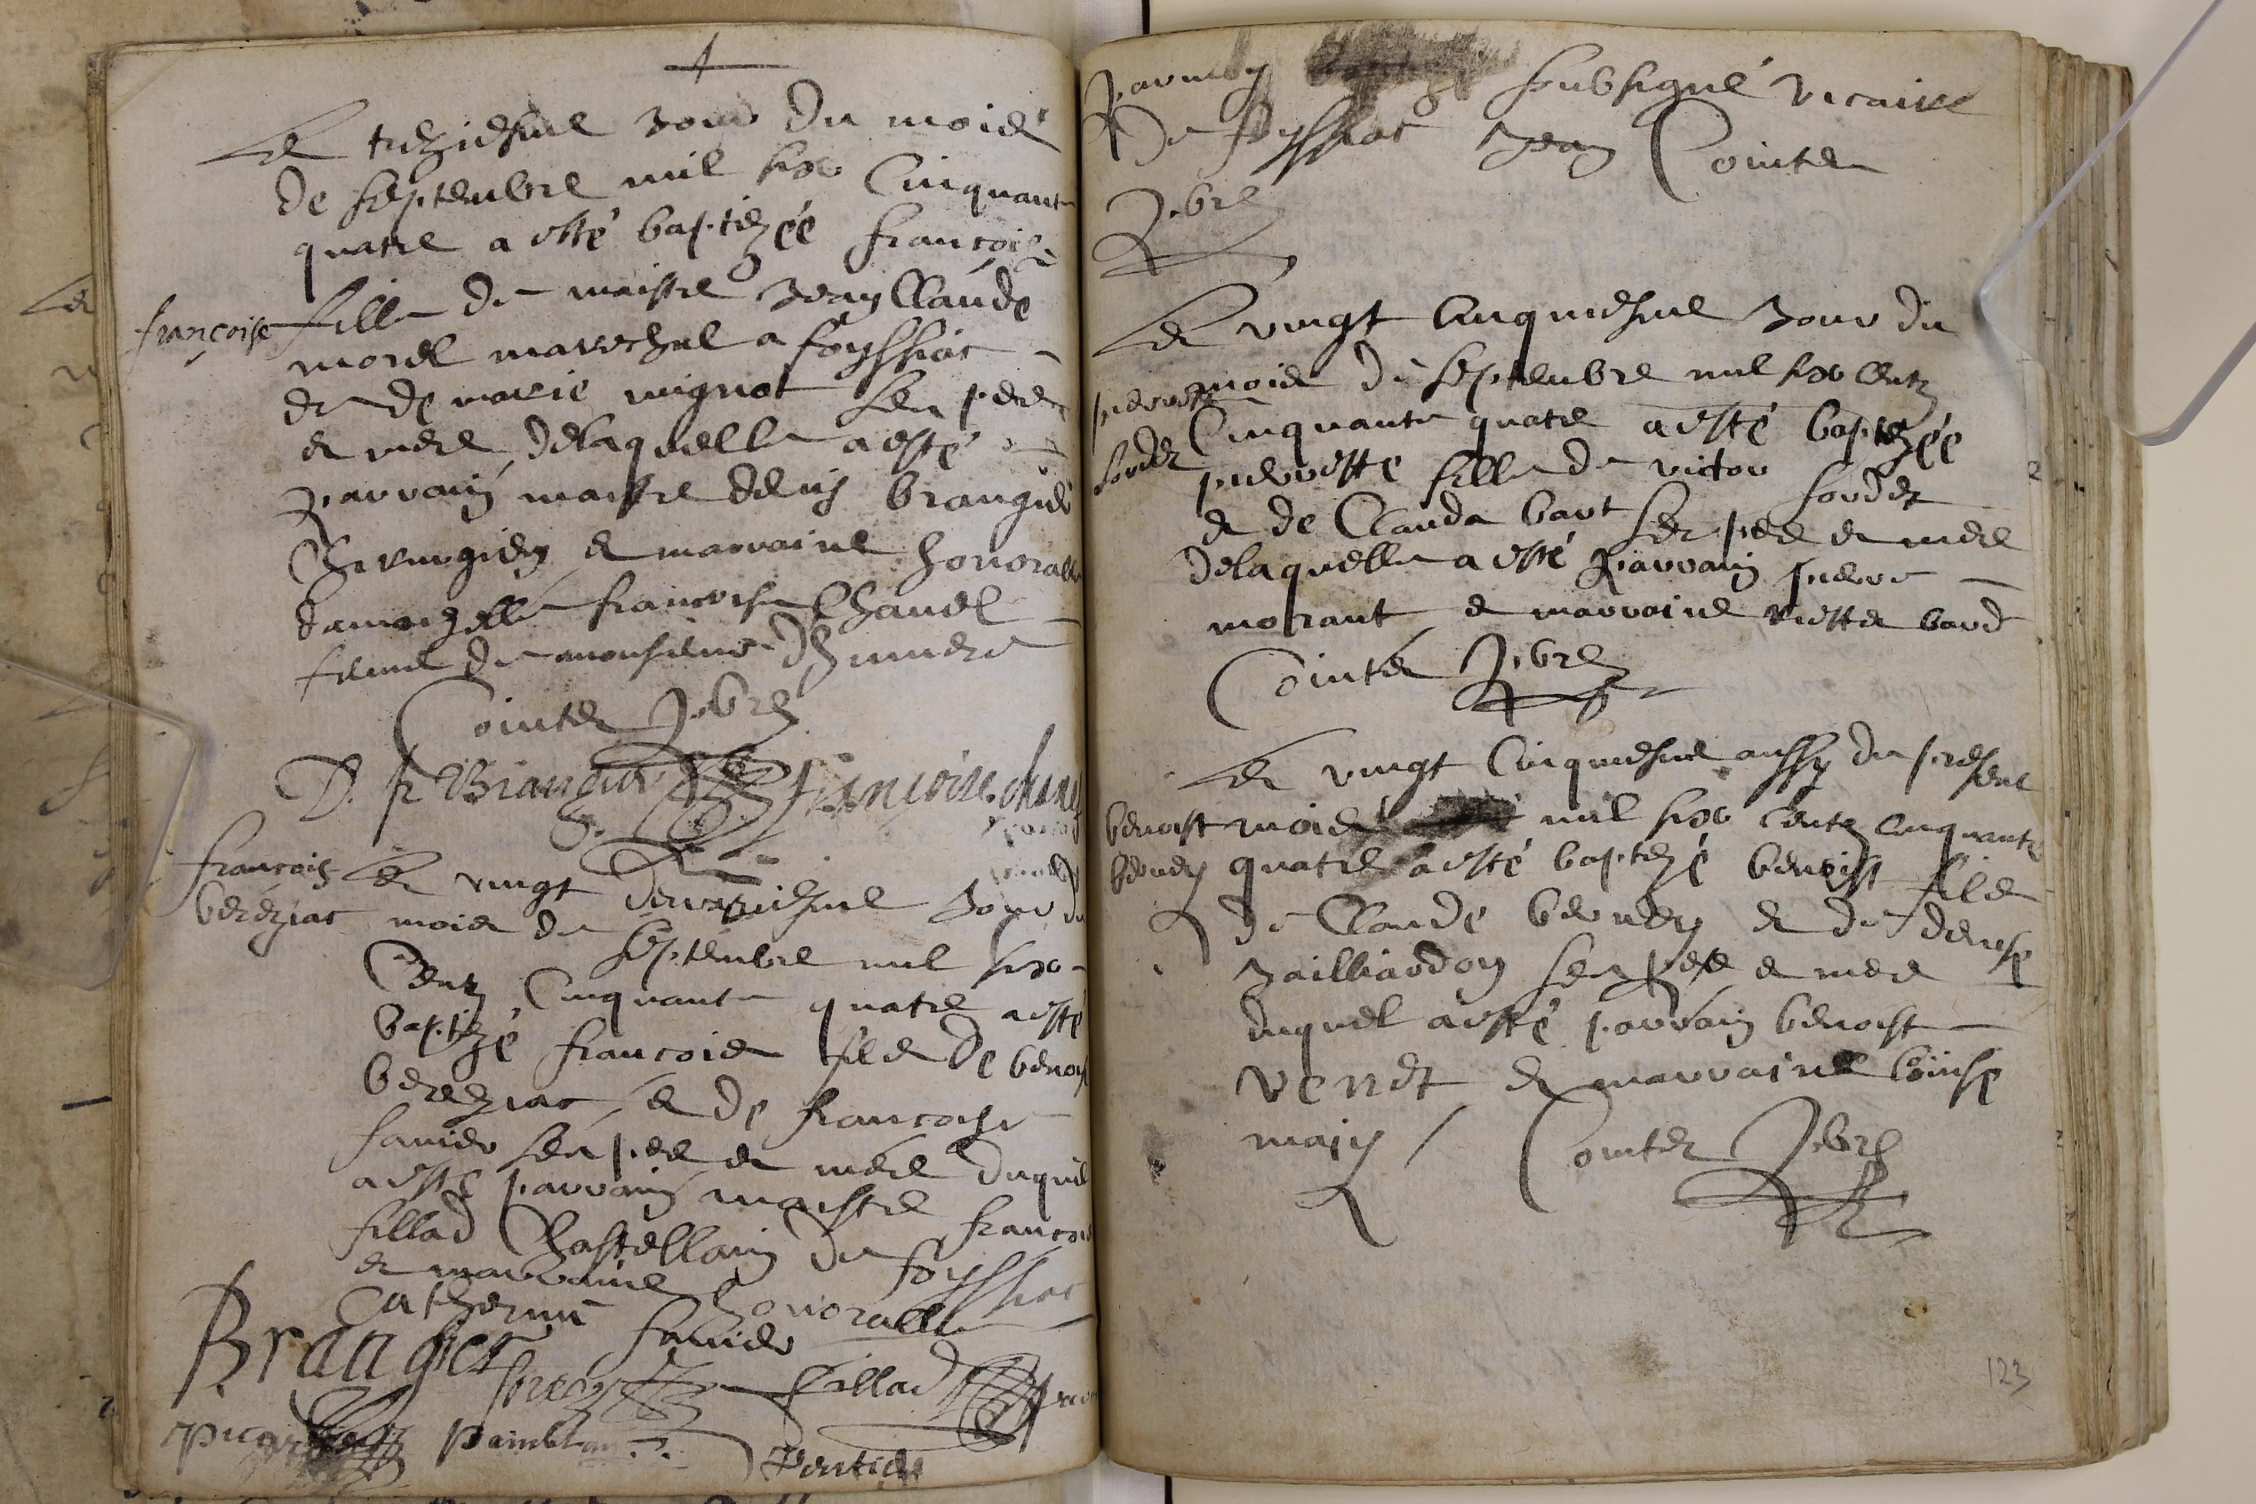 Le treziesme Jour du mois
de septembre mil six Cinquante
quatre a esté baptizée françoise
françoise
fille de maistre Jean Claude
morel mareschal a foyssiac
et de marie mignot ses pere
et mere delaquelle a esté
parrain maistre denis brangier
Chirurgien et marraine honorable
damoizelle francoise Chanel
femme de monsieur
Cointet pbre
D. fr Brangier françoise chanel
françois
bereziac
Le vingt jour du
mois de septembre mil six
Centz Cinquante quatre a esté
baptizé francois filz de benoist
bereziac et de francoise
ses pere et mere duquel
a esté parrain maistre francois
fillad Chastellain de foyssiac
et marraine honorable
Catherine
Brangier
fillad
picar
parmoy subsigné vicaire
de foyssiac Jean Cointet
pbre
Le vingt cinquiesme Jour du
pierrette
mois de septembre mil six Centz
Cinquante quatre a esté baptizée
sordet
pierrette fille de victor sordet
et de Clauda bart ses pere et mere
delaquelle a esté parrain pierre
morant et marraine bard
Cointet pbre
Le vingt Cinquiesme aussy du present
benoist
mois mil six centz cinquante
quatre a esté baptizé benoist filz
de Claude et de denise
Jailliardon ses pere et mere
duquel a esté parrain benoist
venet et marraine
Cointet pbre
123